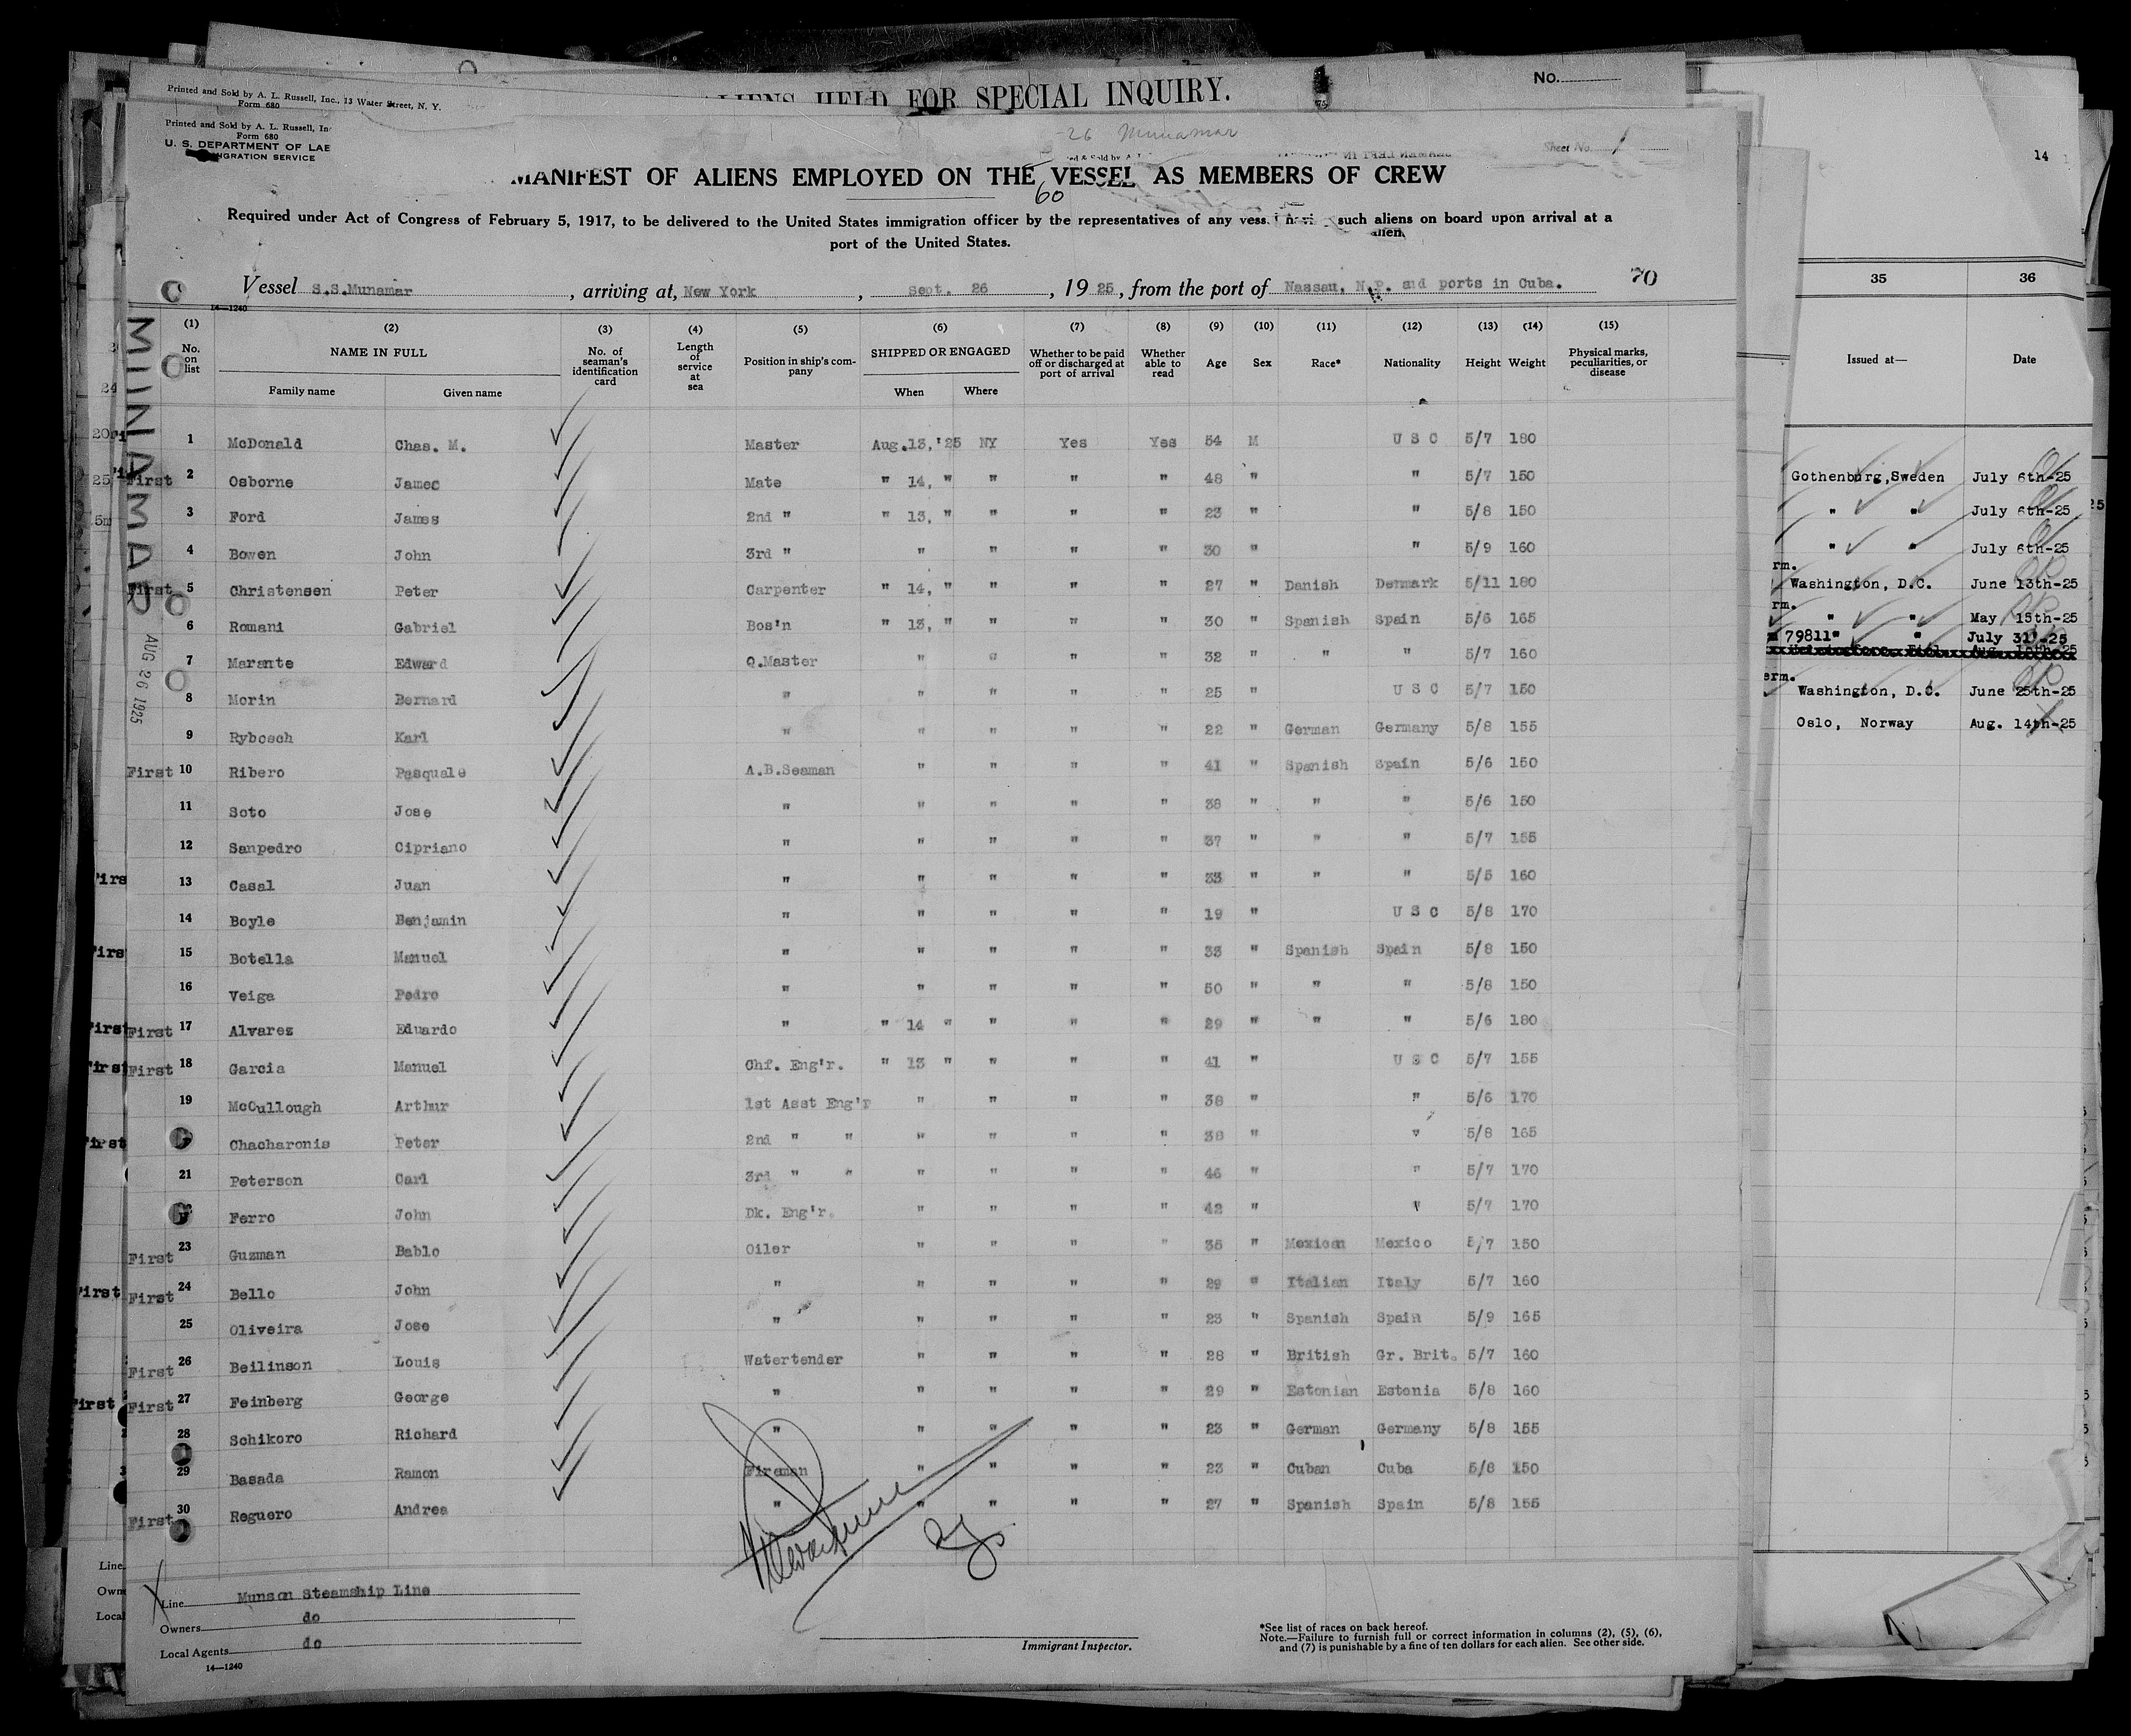 Printed and Sold by A. L. Russell, Inc., 13 Water Street, N. Y.
Form 680
ALIENS HELD FOR SPECIAL INQUIRY.
No.
Printed and Sold by A. L. Russell, In
Form 680
U. S. DEPARTMENT OF LAB
IMMIGRATION SERVICE
26 Munamar
Sheet No. 1
MANIFEST OF ALIENS EMPLOYED ON THE VESSEL AS MEMBERS OF CREW
60
Required under Act of Congress of February 5, 1917, to be delivered to the United States immigration officer by the representatives of any vessel having such aliens on board upon arrival at a
port of the United States.
Vessel S.S.Munamar, arriving at, New York, Sept. 26, 1925, from the port of Nassau, N.P. and ports in Cuba. 70
14—1240
MUNAMAR
AUG 26 1925
(1) (2) (3) (4) (5) (6) (7) (8) (9) (10) (11) (12) (13) (14) (15)
No. on list NAME IN FULL Family name Given name No. of seaman's identification card Length of service at sea Position in ship's company SHIPPED OR ENGAGED When Where Whether to be paid off or discharged at port of arrival Whether able to read Age Sex Race* Nationality Height Weight Physical marks, peculiarities, or disease
1 McDonald Chas. M. Master Aug.13,'25 NY Yes Yes 54 M U S C 5/7 180
First 2 Osborne James Mate " 14, " " " " 48 " " 5/7 150
3 Ford James 2nd " " 13, " " " " 23 " " 5/8 150
4 Bowen John 3rd " " " " " 30 " " 5/9 160
First 5 Christensen Peter Carpenter " 14, " " " " 27 " Danish Denmark 5/11 180
6 Romani Gabriel Bos'n " 13, " " " " 30 " Spanish Spain 5/6 165
7 Marante Edward Q.Master " " " " 32 " " " 5/7 160
8 Morin Bernard " " " " " 25 " U S C 5/7 150
9 Rybosch Karl " " " " " 22 " German Germany 5/8 155
First 10 Ribero Pasquale A.B.Seaman " " " " 41 " Spanish Spain 5/6 150
11 Soto Jose " " " " " 38 " " " 5/6 150
12 Sanpedro Cipriano " " " " " 37 " " " 5/7 155
13 Casal Juan " " " " " 33 " " " 5/5 160
14 Boyle Benjamin " " " " " 19 " U S C 5/8 170
15 Botella Manuel " " " " " 33 " Spanish Spain 5/8 150
16 Veiga Pedro " " " " " 50 " " " 5/8 150
First 17 Alvarez Eduardo " " 14 " " " " 29 " " " 5/6 180
First 18 Garcia Manuel Chf. Eng'r. " 13 " " " " 41 " U S C 5/7 155
19 McCullough Arthur 1st Asst Eng'r " " " " 38 " " 5/6 170
Chacharonis Peter 2nd " " " " " " 38 " " 5/8 165
21 Peterson Carl 3rd " " " " " " 46 " " 5/7 170
Ferro John Dk. Eng'r. " " " " 42 " " 5/7 170
First 23 Guzman Bablo Oiler " " " " 35 " Mexican Mexico 5/7 150
First 24 Bello John " " " " " 29 " Italian Italy 5/7 160
25 Oliveira Jose " " " " " 23 " Spanish Spain 5/9 165
First 26 Beilinson Louis Watertender " " " " 28 " British Gr. Brit. 5/7 160
First 27 Feinberg George " " " " " 29 " Estonian Estonia 5/8 160
28 Schikoro Richard " " " " " 23 " German Germany 5/8 155
29 Basada Ramon Fireman " " " " 23 " Cuban Cuba 5/8 150
First 30 Reguero Andrea " " " " " 27 " Spanish Spain 5/8 155
Line Munson Steamship Line
Owners do
Local Agents do
14—1240
Immigrant Inspector.
*See list of races on back hereof.
Note.—Failure to furnish full or correct information in columns (2), (5), (6),
and (7) is punishable by a fine of ten dollars for each alien. See other side.
14
35 36
Issued at— Date
Gothenburg,Sweden July 6th-25
" " July 6th-25
" " July 6th-25
Washington, D.C. June 13th-25
" " May 15th-25
79811" " July 31'-25
Washington, D.C. June 25th-25
Oslo, Norway Aug. 14th-25